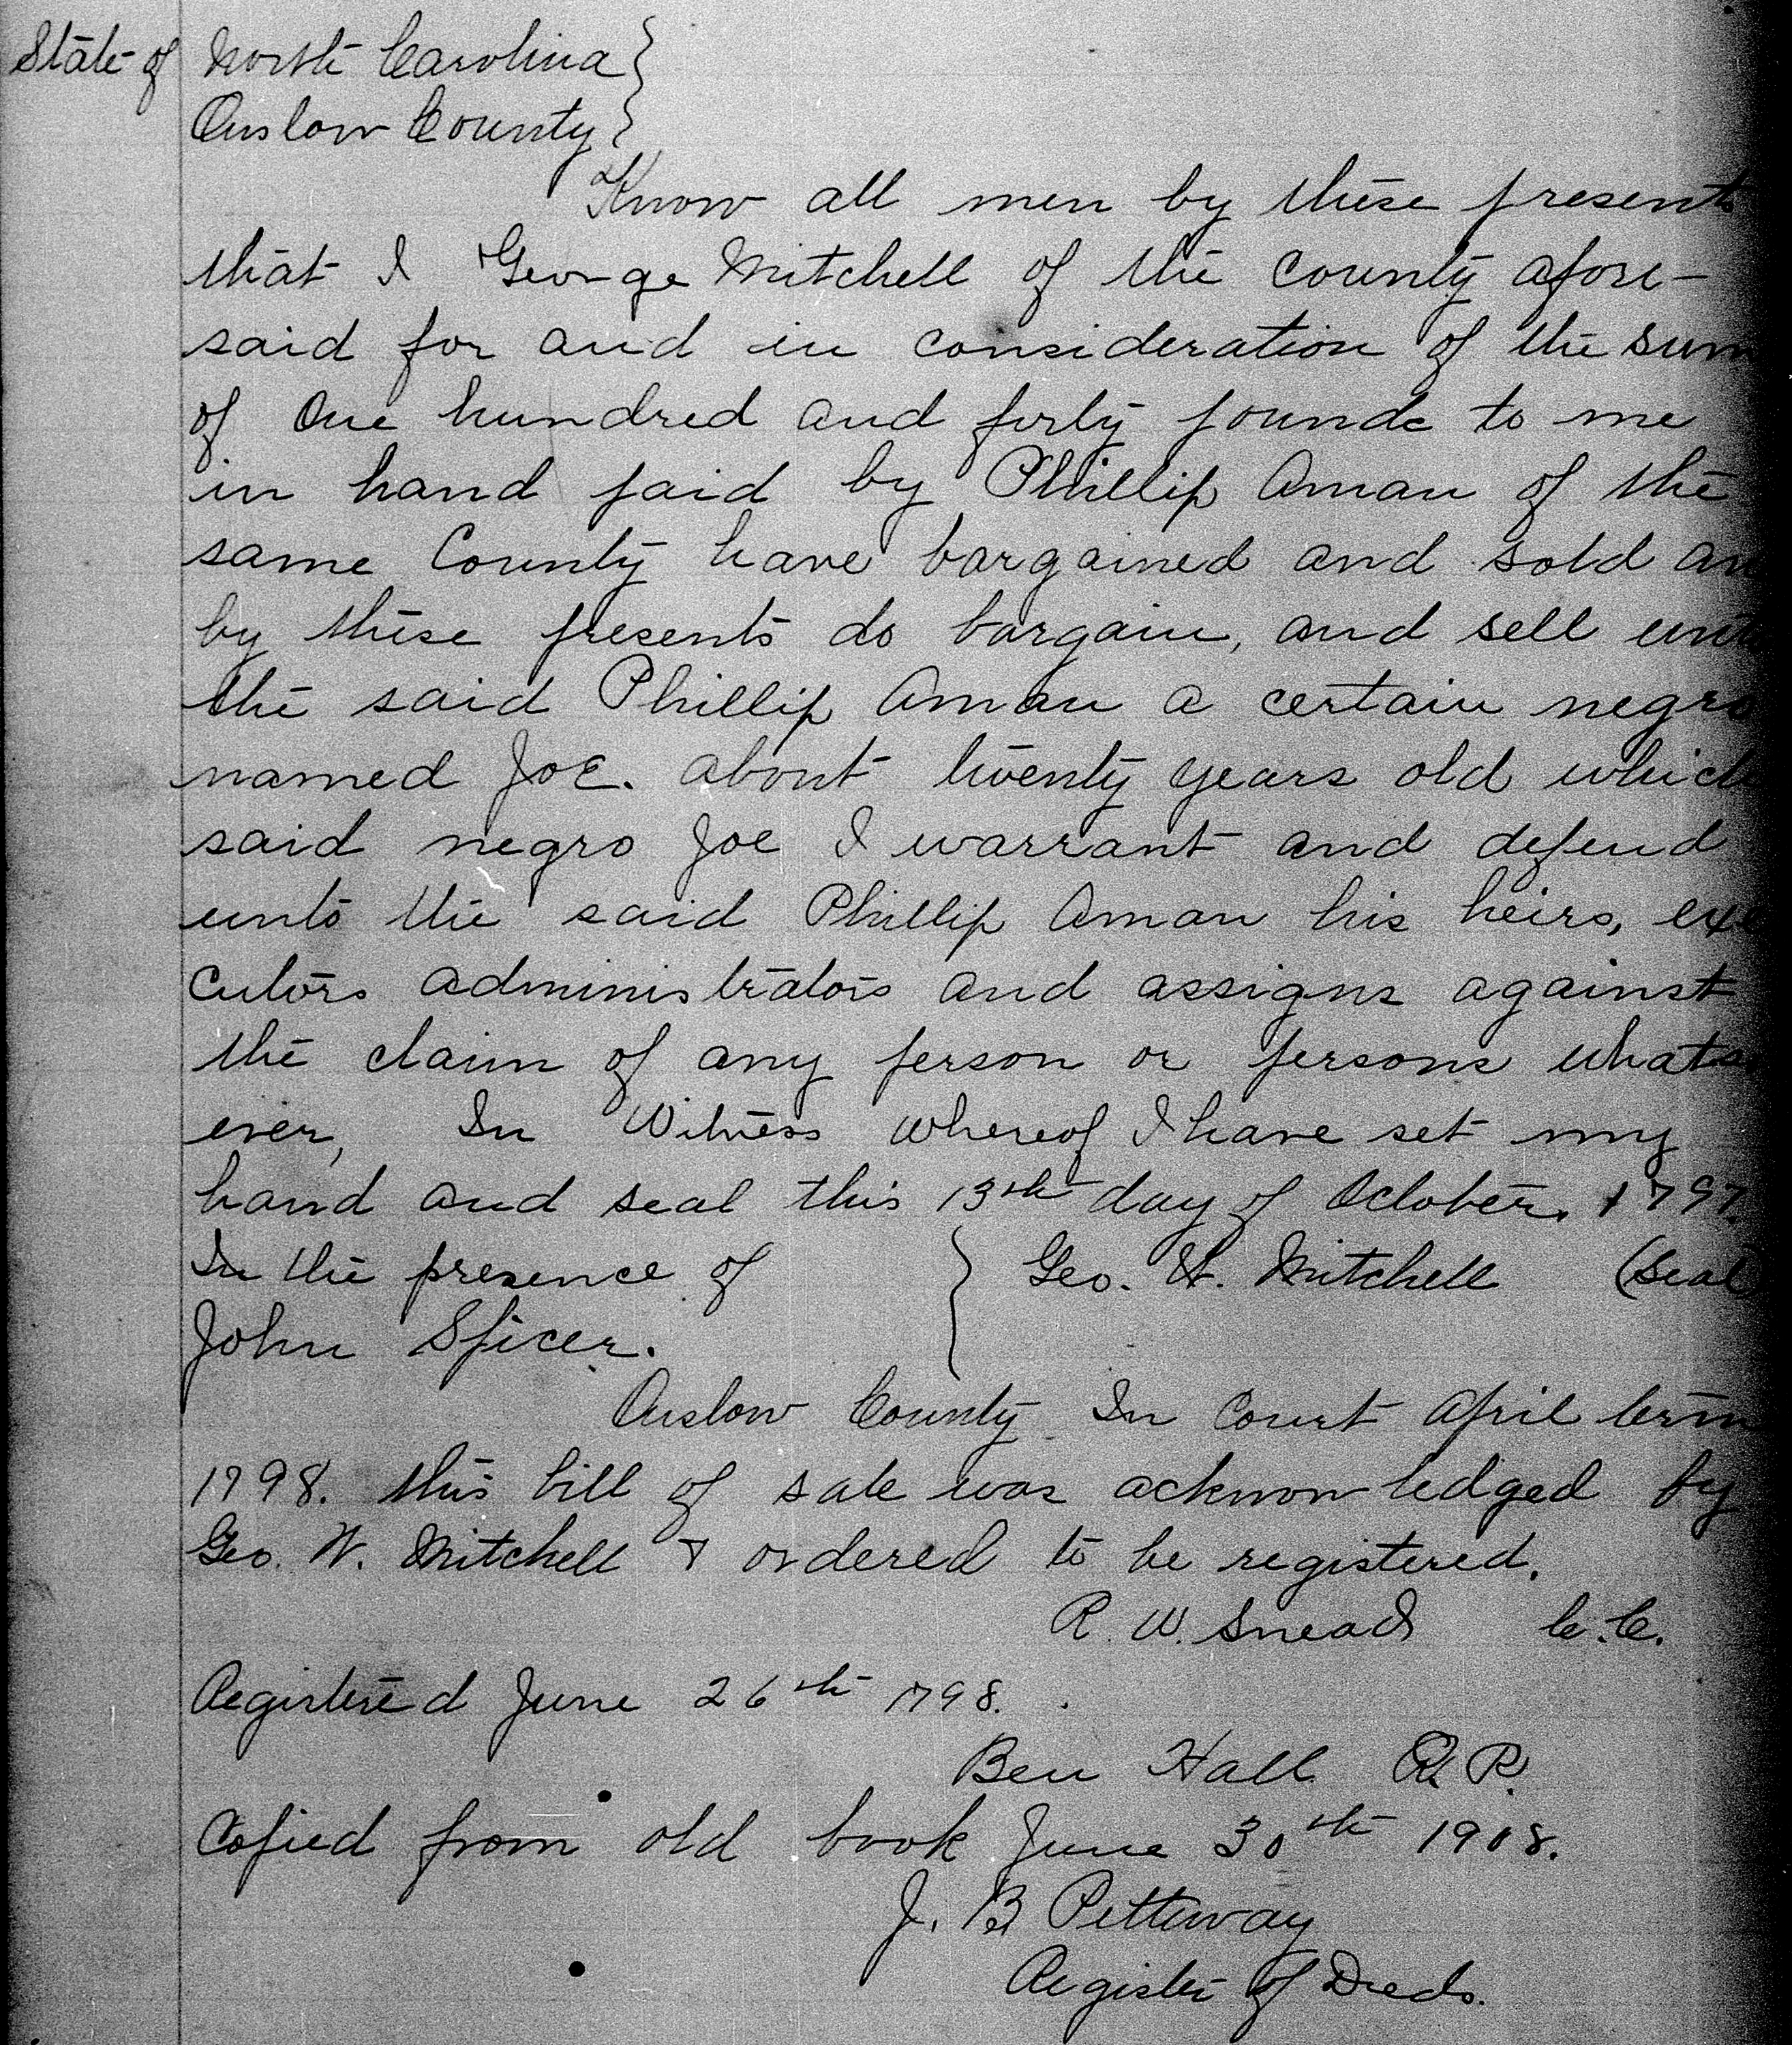 State of North Carolina }
Onslow County }
Know all men by these presents
that I George Mitchell of the County afore-
said for and in consideration of the sum
of One hundred and forty pounds to me
in hand paid by Phillip Aman of the
same County have bargained and sold an
by these presents do bargain, and sell unto
the said Phillip Aman a certain negro
named Joe. about twenty years old which
said negro Joe I warrant and defend
unto the said Phillip Aman his heirs, exe
cutors administrators and assigns against
the claim of any person or persons whatso
ever, In Witness whereof I have set my
hand and seal this 13th day of October, 1797.
In the presence of } Geo. W. Mitchell (Seal
John Spicer.
Onslow County In Court April term
1798. this bill of sale was acknowledged by
Geo. W. Mitchell & ordered to be registered.
R. W. Snead C.C.
Registered June 26th 1798.
Ben Hall R. R.
Copied from old book June 30th 1908.
J. B Petteway
Register of Deeds.